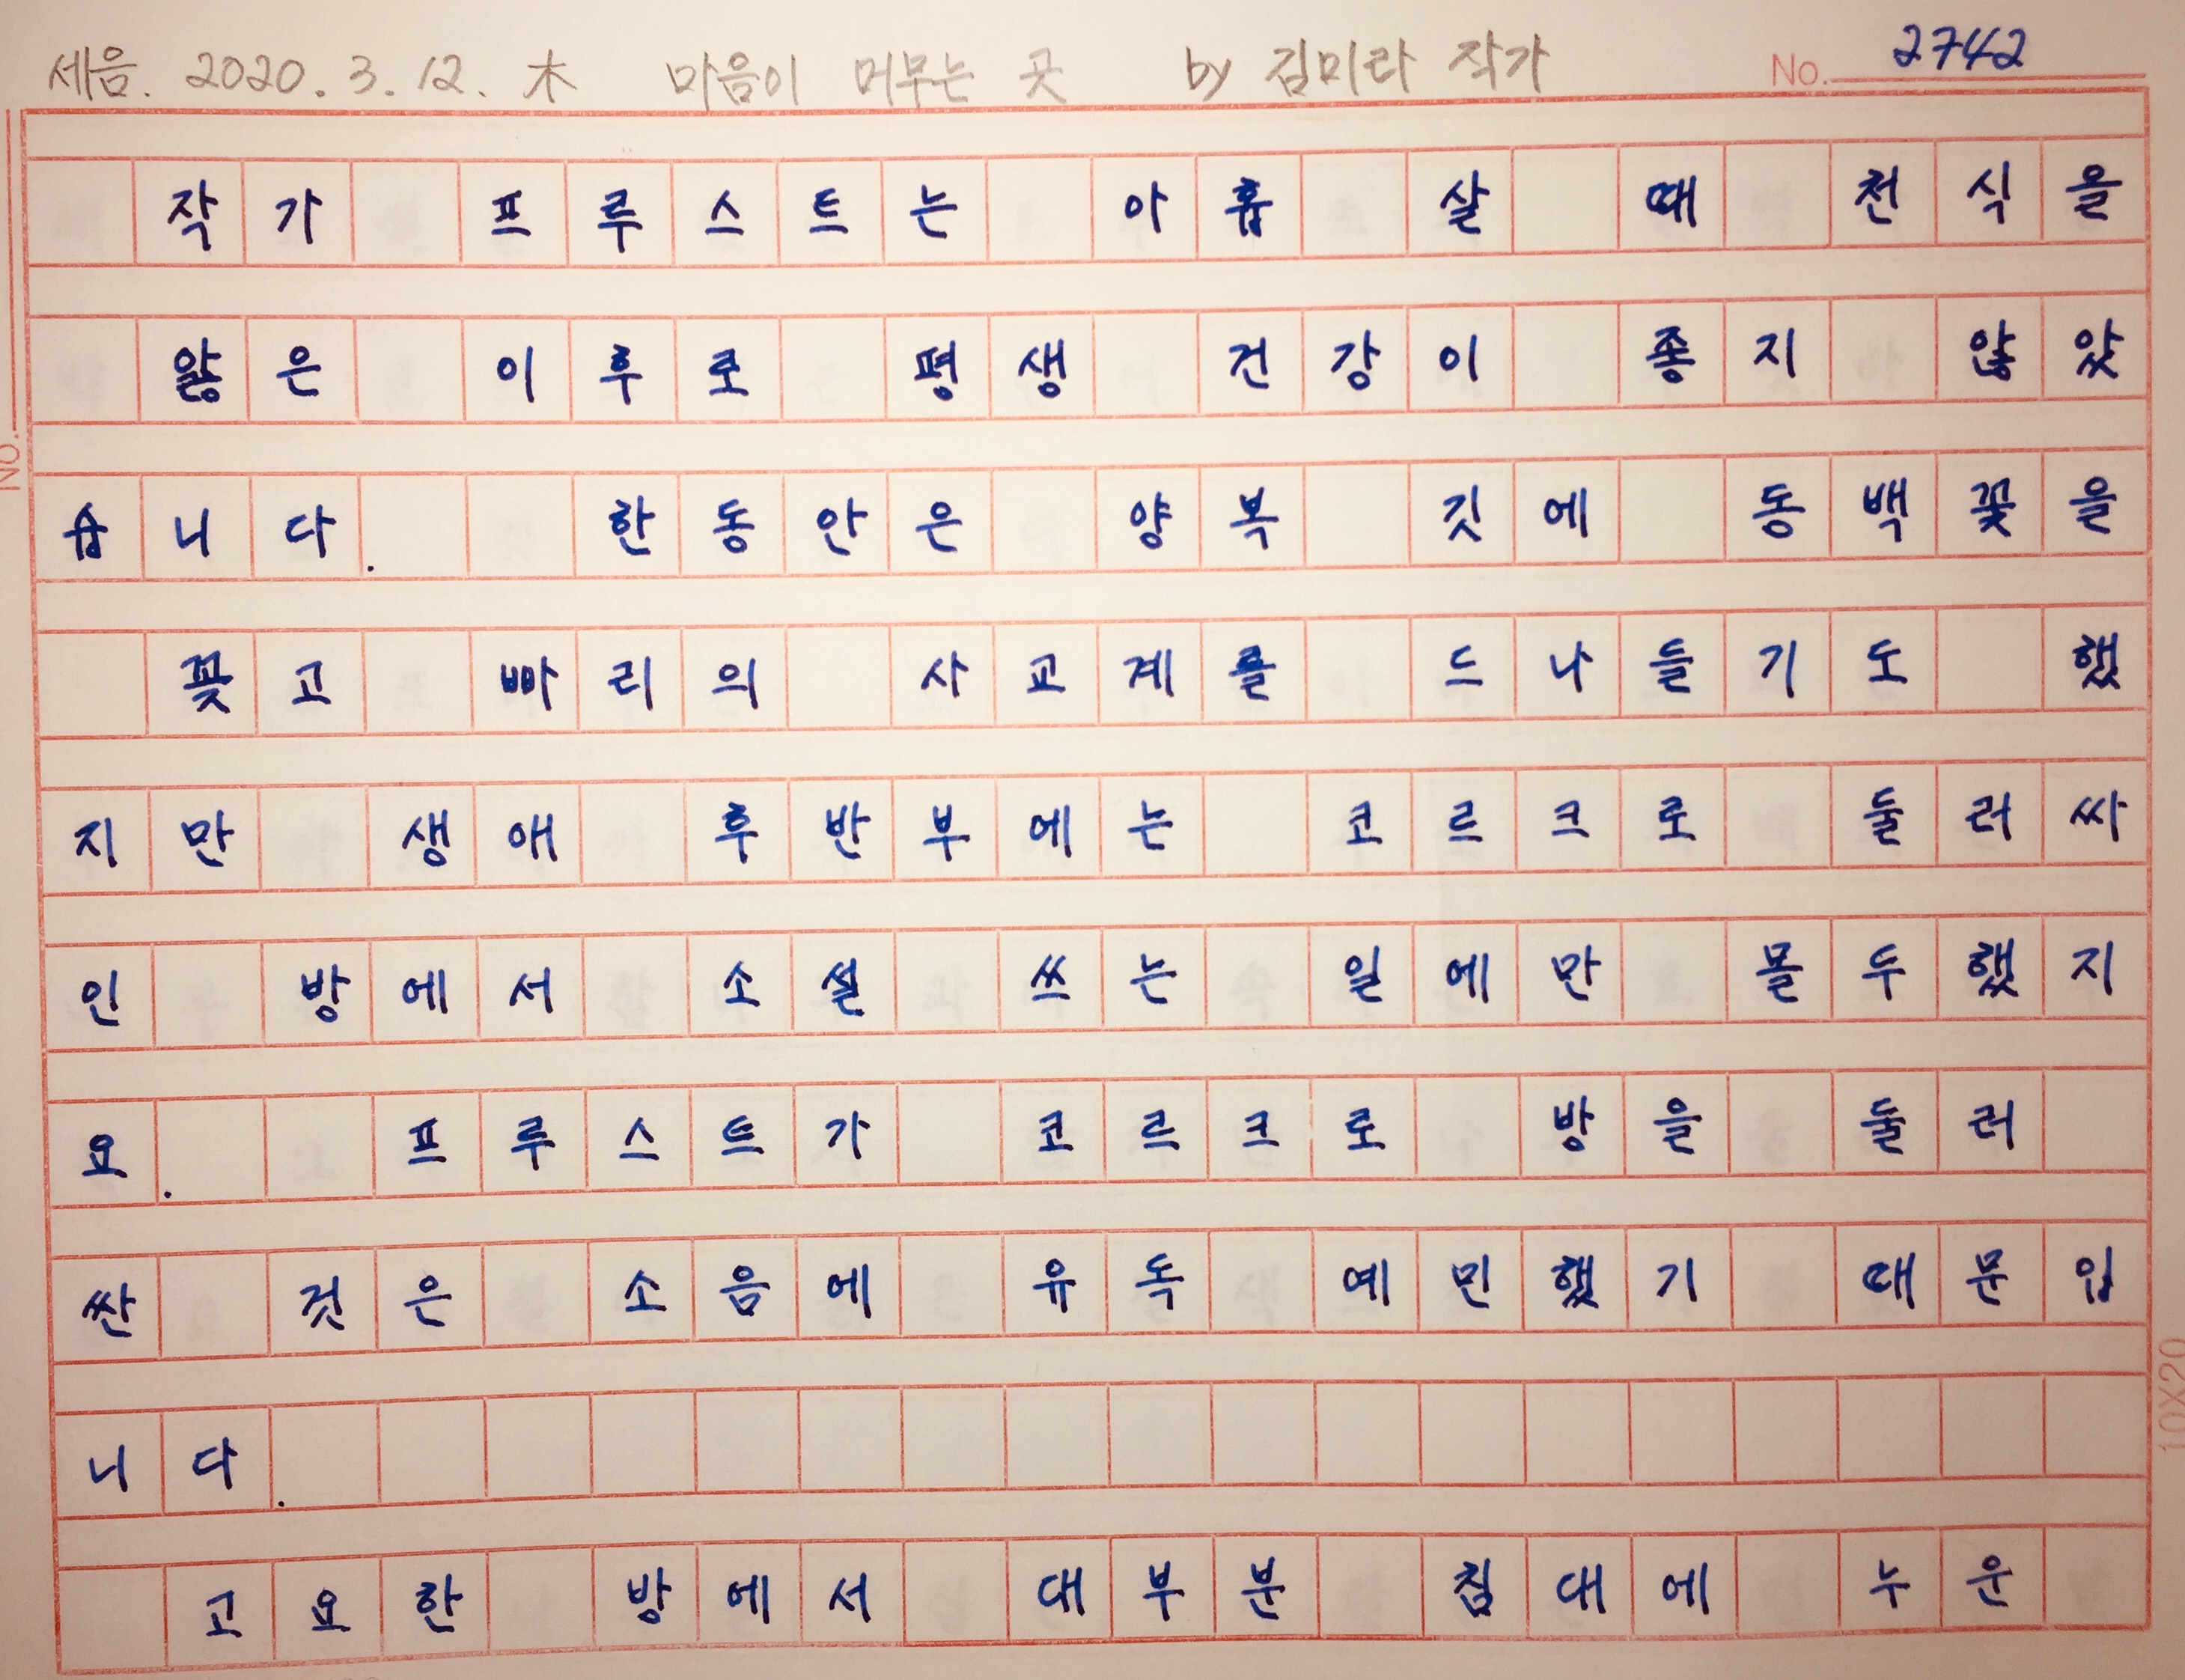 세음. 2020. 3. 12. 木 마음이 머무는 곳 by 김미라 작가 No. 2742
작가 프루스트는 아홉 살 때 천식을
앓은 이후로 평생 건강이 좋지 않았
습니다. 한동안은 양복 깃에 동백꽃을
꽂고 빠리의 사교계를 드나들기도 했
지만 생애 후반부에는 코르크로 둘러싸
인 방에서 소설 쓰는 일에만 몰두했지
요. 프루스트가 코르크로 방을 둘러
싼 것은 소음에 유독 예민했기 때문입
니다.
고요한 방에서 대부분 침대에 누운
No.
10X20